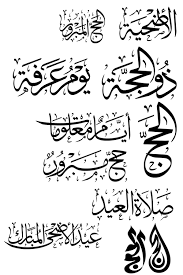 الأضحية
الحج المبرور
ذو الحجة
يوم عرفة
الحج
أيام معلومات
حج مبرور
صلاة العيد
عيد الأضحى المبارك
الحج